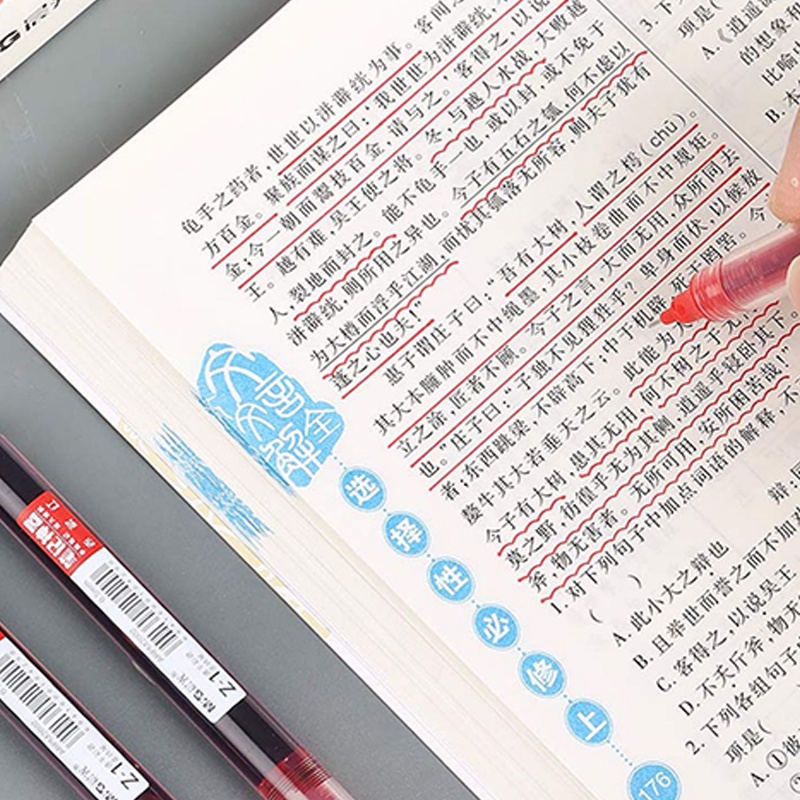 客间
龟手之药者，世世以洴澼絖为事。
方百金。聚族而谋之曰：我世世为洴澼絖，不
金；今一朝而鬻技百金，请与之。客得之，以说
王。越有难，吴王使之将。冬，与越人水战，大败越
人，裂地而封之。能不龟手一也，或以封，或不免于
洴澼絖，则所用之异也。今子有五石之瓠，何不虑以
为大樽而浮乎江湖，而忧其瓠落无所容，则夫子犹有
蓬之心也夫！”
惠子谓庄子曰：“吾有大树，人谓之樗(chū)。
其大本臃肿而不中绳墨，其小枝卷曲而不中规矩。
立之涂，匠者不顾。今子之言，大而无用，众所同去
也。”庄子曰：“子独不见狸狌乎？卑身而伏，以候敖
者；东西跳梁，不辟高下；中于机辟，死于罔罟。今
斄牛其大若垂天之云。此能为大
今子有大树，患其无用，何不树之于无
莫之野，彷徨乎无为其侧，逍遥乎寝卧其下。
斧，物无害者。无所可用，安所困苦哉！”
1. 对下列句子中加点词语的解释，不
(    )
A. 此小大之辩也
辩：同
B. 且举世而誉之而不加
C. 客得之，以说吴王
D. 不夭斤斧，物无
2. 下列各组句子
项是(
A. ①彼
3. 下
项是(
A.《逍遥
的想象和
比喻
B. 本
文言文
全解
选择性必修上
176
Z-1
Z-1